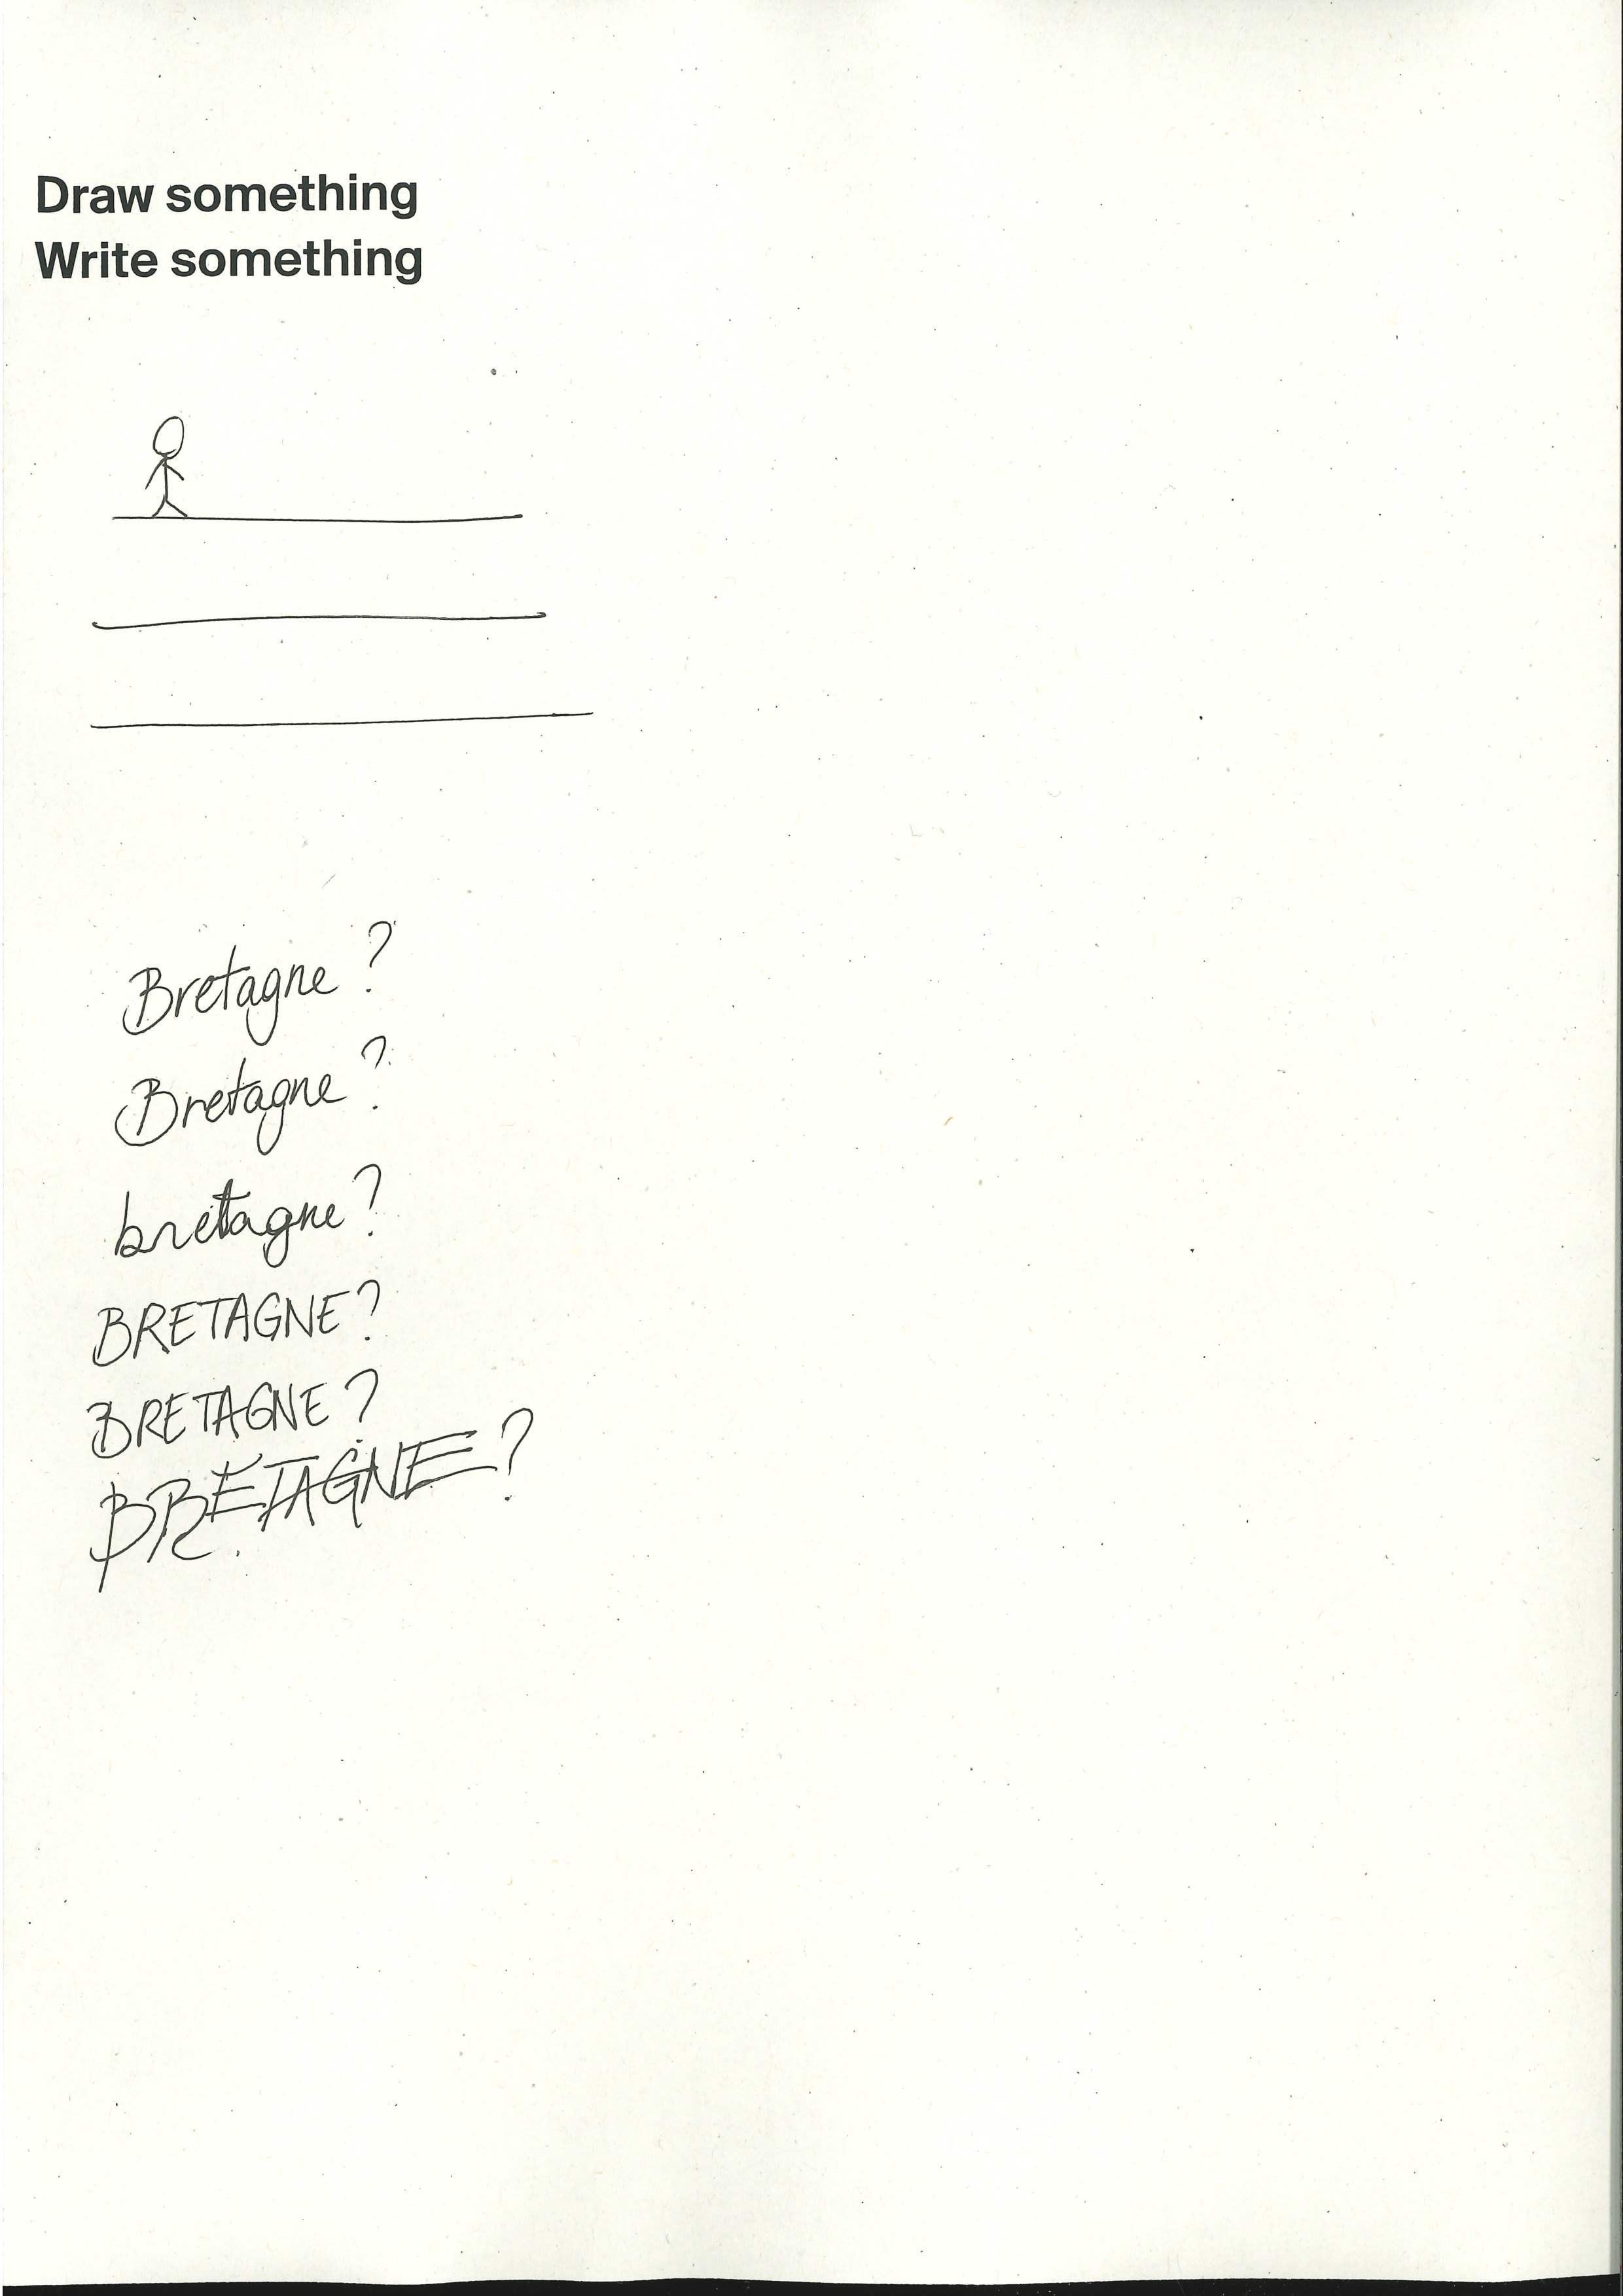 Draw something
Write something
Bretagne ?
Bretagne ?
bretagne ?
BRETAGNE ?
BRETAGNE ?
BRETAGNE ?